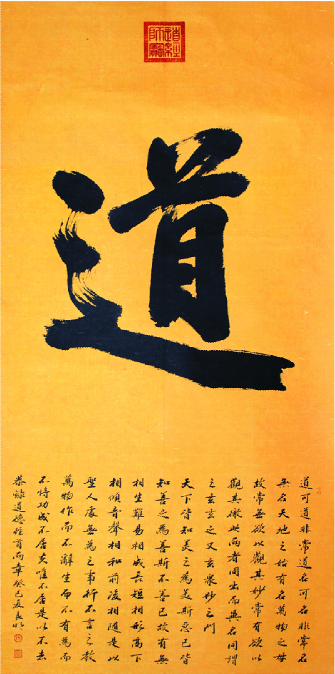 道
道可道非常道名可名非常名
無名天地之始有名萬物之母
故常無欲以觀其妙常有欲以
觀其徼此兩者同出而異名同謂
之玄玄之又玄衆妙之門
天下皆知美之為美斯惡已皆
知善之為善斯不善已故有無
相生難易相成長短相形高下
相傾音聲相和前後相隨是以
聖人處無為之事行不言之教
萬物作而不辭生而不有為而
不恃功成不居夫唯不居是以不去
恭錄道德經首兩章癸巳夏良